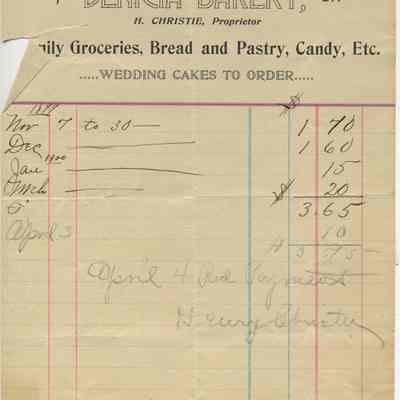 BENICIA BAKERY,
H. CHRISTIE, Proprietor
ily Groceries, Bread and Pastry, Candy, Etc.
.....WEDDING CAKES TO ORDER.....
1899 $
Nov 7 to 30 — 1 70
Dec — 1 60
1900
Jan — 15
Mch — $ 20
3.65
April 3 10
3 75 —
April 4 Rcd Payment
Henry Christie